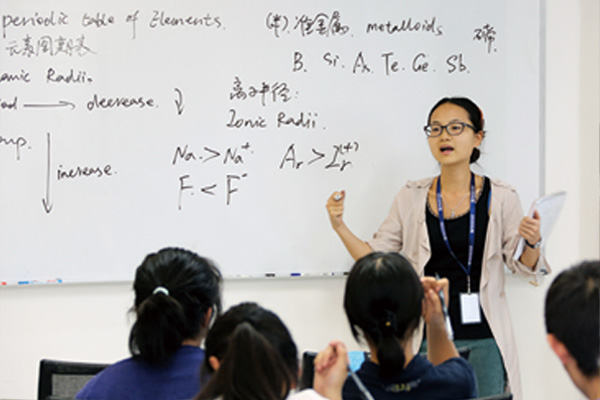 periodic table of Elements.
元素周期表
onic Radii.
od → decrease.
oup.
increase.
(半).准金属. metalloids
B. Si. As. Te. Ge. Sb.
离子半径:
Ionic Radii.
Na. > Na⁺
F. < F⁻